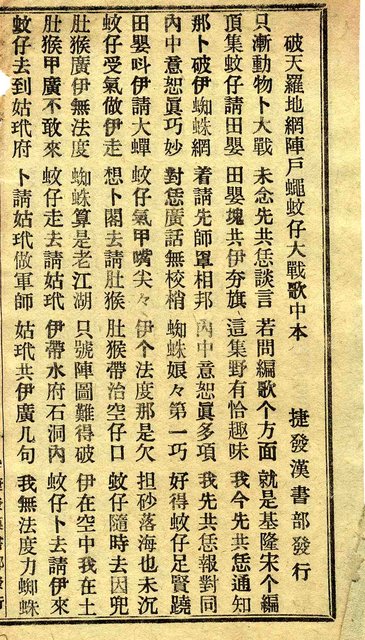 破天羅地網陣戶蠅蚊仔大戰歌中本 捷發漢書部發行
只漸動物卜大戰 未念先共恁談言 若問編歌个方面 就是基隆宋个編
頂集蚊仔請田嬰 田嬰塊共伊夯旗 這集野有恰趣味 我今先共恁通知
那卜破伊蜘蛛網 着請先師罩相邦 內中意恕眞多項 我先共恁報對同
內中意恕眞巧妙 對恁廣話無校梢 蜘蛛娘々第一巧 好得蚊仔足賢蹺
田嬰呌伊請大蟬 蚊仔氣甲嘴尖々 伊个法度那是欠 担砂落海也未沉
蚊仔受氣做伊走 想卜閣去請肚猴 肚猴帶治空仔口 蚊仔隨時去因兜
肚猴廣伊無法度 蜘蛛算是老江湖 只號陣圖難得破 伊在空中我在土
肚猴甲廣不敢來 蚊仔走去請姑玳 伊帶水府石洞內 蚊仔卜去請伊來
蚊仔去到姑玳府 卜請姑玳做軍師 姑玳共伊廣几句 我無法度力蜘蛛